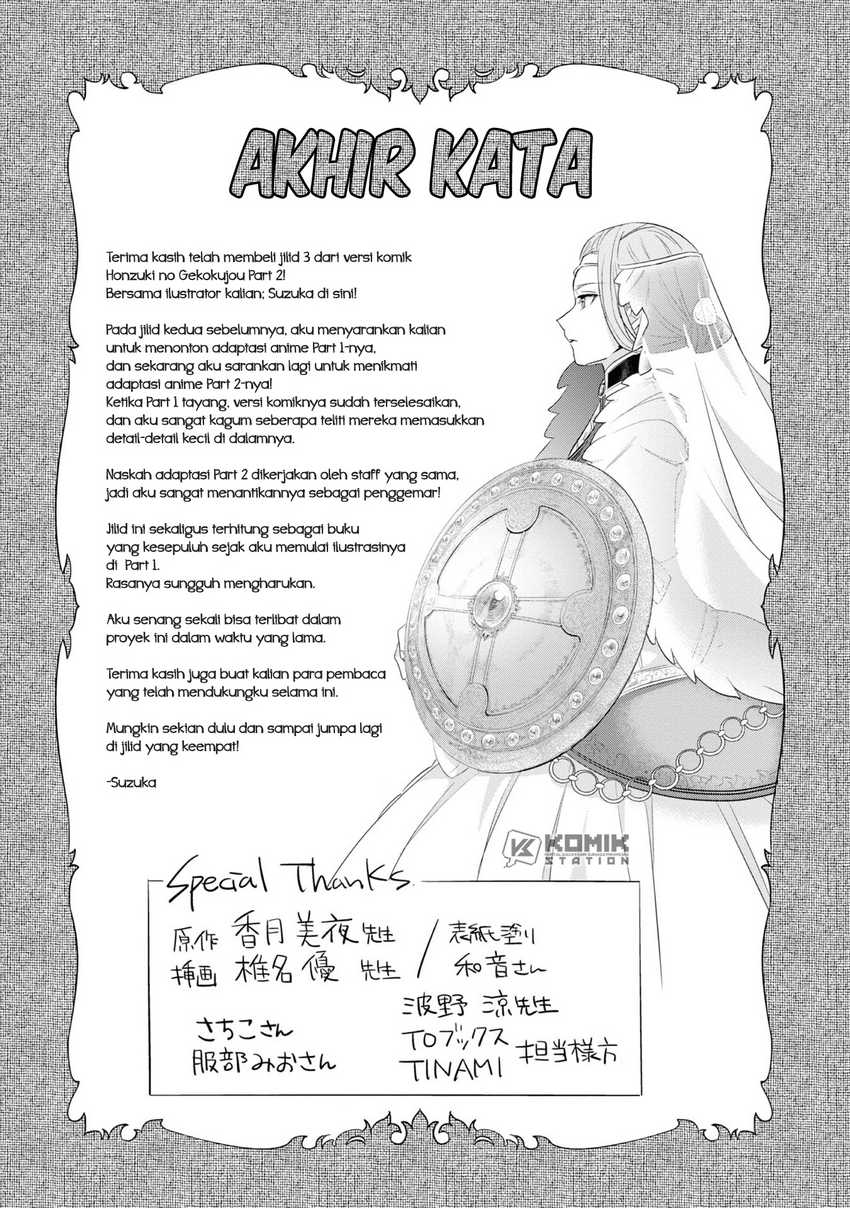 AKHIR KATA
Terima kasih telah membeli jilid 3 dari versi komik
Honzuki no Gekokujou Part 2!
Bersama ilustrator kalian; Suzuka di sini!
Pada jilid kedua sebelumnya, aku menyarankan kalian
untuk menonton adaptasi anime Part 1-nya,
dan sekarang aku sarankan lagi untuk menikmati
adaptasi anime Part 2-nya!
Ketika Part 1 tayang, versi komiknya sudah terselesaikan,
dan aku sangat kagum seberapa teliti mereka memasukkan
detail-detail kecil di dalamnya.
Naskah adaptasi Part 2 dikerjakan oleh staff yang sama,
jadi aku sangat menantikannya sebagai penggemar!
Jilid ini sekaligus terhitung sebagai buku
yang kesepuluh sejak aku memulai ilustrasinya
di Part 1.
Rasanya sungguh mengharukan.
Aku senang sekali bisa terlibat dalam
proyek ini dalam waktu yang lama.
Terima kasih juga buat kalian para pembaca
yang telah mendukungku selama ini.
Mungkin sekian dulu dan sampai jumpa lagi
di jilid yang keempat!
-Suzuka
KOMIK
STATION
Special Thanks
原作 香月美夜先生
挿画 椎名優先生
/ 表紙塗り
和音さん
さちこさん
服部みおさん
波野涼先生
TOブックス
TINAMI
担当様方